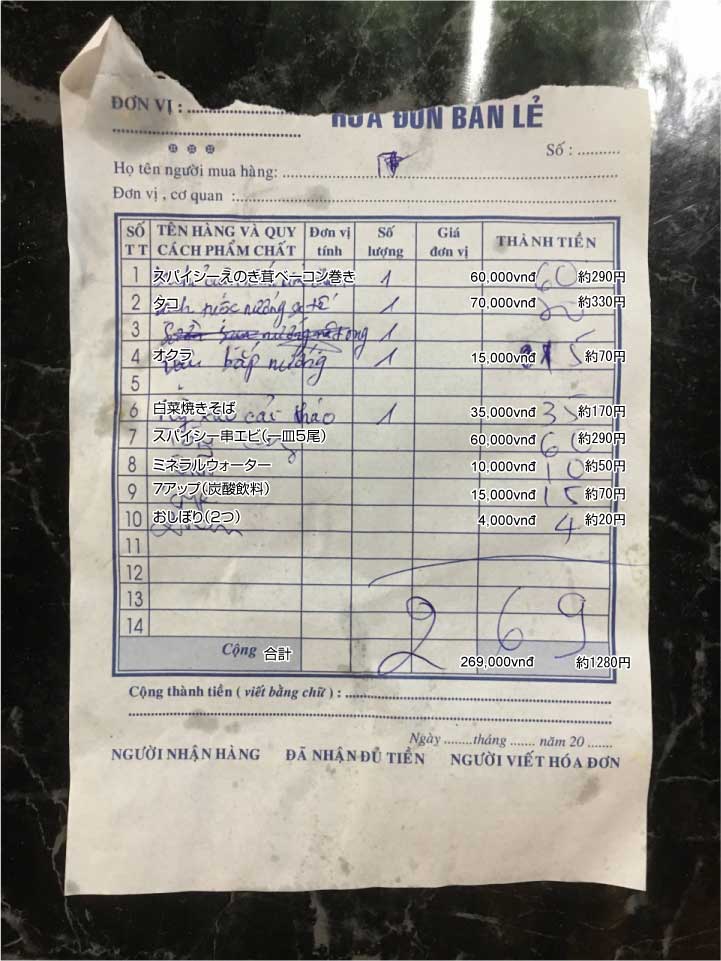 ĐƠN VỊ :
HÓA ĐƠN BÁN LẺ
Số :
Họ tên người mua hàng:
Đơn vị , cơ quan :
SỐ TT TÊN HÀNG VÀ QUY CÁCH PHẨM CHẤT Đơn vị tính Số lượng Giá đơn vị THÀNH TIỀN
1 スパイシーえのぎ茸ベーコン巻き 1 60,000vnđ 60 約290円
2 タコ nướng 1 70,000vnđ 約330円
3 1
4 オクラ bắp nướng 1 15,000vnđ 15 約70円
5
6 白菜焼きそば cải thảo 1 35,000vnđ 35 約170円
7 スパイシー串エビ(一皿5尾) 60,000vnđ 60 約290円
8 ミネラルウォーター 10,000vnđ 10 約50円
9 7アップ(炭酸飲料) 15,000vnđ 15 約70円
10 おしぼり(2つ) 4,000vnđ 4 約20円
11
12
13
14
269
Cộng 合計 269,000vnđ 約1280円
Cộng thành tiền ( viết bằng chữ ) :
Ngày ........tháng ....... năm 20 .......
NGƯỜI NHẬN HÀNG ĐÃ NHẬN ĐỦ TIỀN NGƯỜI VIẾT HÓA ĐƠN